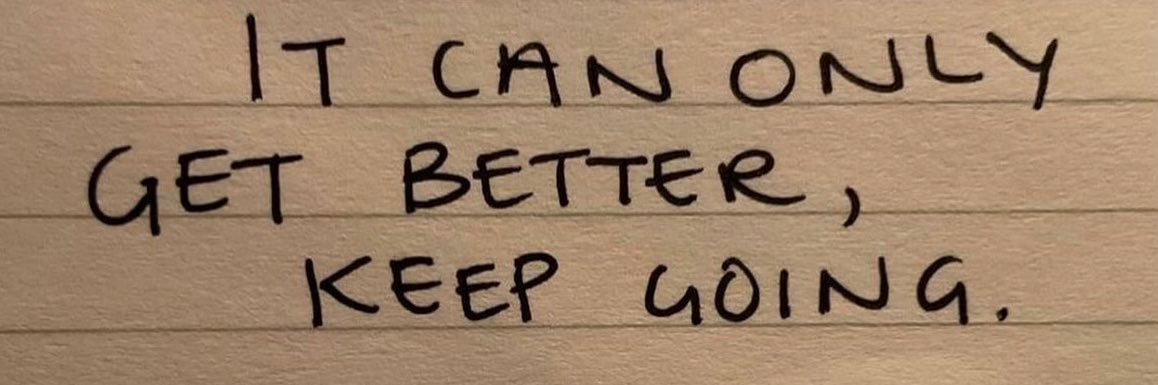 IT CAN ONLY
GET BETTER,
KEEP GOING.